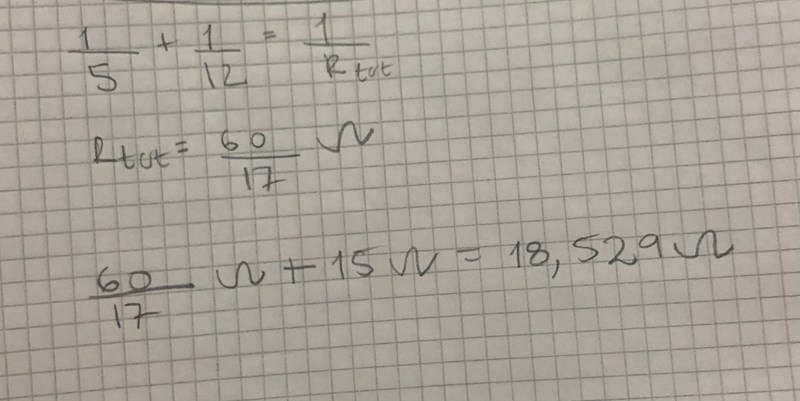 1/5 + 1/12 = 1/Rtot
Rtot = 60/17 Ω
60/17 Ω + 15 Ω = 18,529 Ω